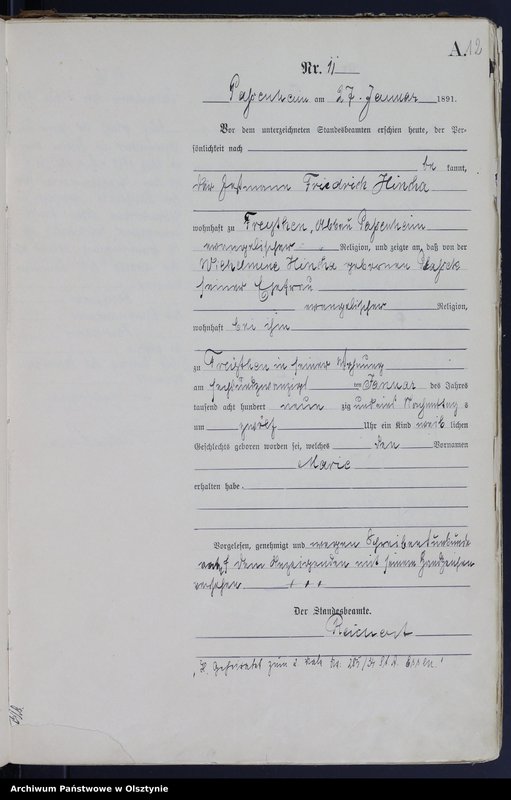 A. 12
Nr. 11
Passenheim am 27. Januar 1891.
Vor dem unterzeichneten Standesbeamten erschien heute, der Per-
sönlichkeit nach
be kannt,
der Friedrich Hincha
wohnhaft zu Freythen, Abbau Passenheim
evangelischer Religion, und zeigte an, daß von der
Wilhelmine Hincha geborenen
seiner Ehefrau
evangelischer Religion,
wohnhaft bei ihm
zu Freythen in seiner Wohnung
am sechsundzwanzigsten Januar des Jahres
tausend acht hundert neun zig und eins Nachmittag s
um zwölf Uhr ein Kind weib lichen
Geschlechts geboren worden sei, welches den Vornamen
Marie
erhalten habe.
Vorgelesen, genehmigt und wegen Schreibensunkunde
von dem Anzeigenden mit seinem Handzeichen
versehen + + +
Der Standesbeamte.
Reichert
Geheiratet zum 2. Male No. 285/34 St. A. Essen.
Archiwum Państwowe w Olsztynie